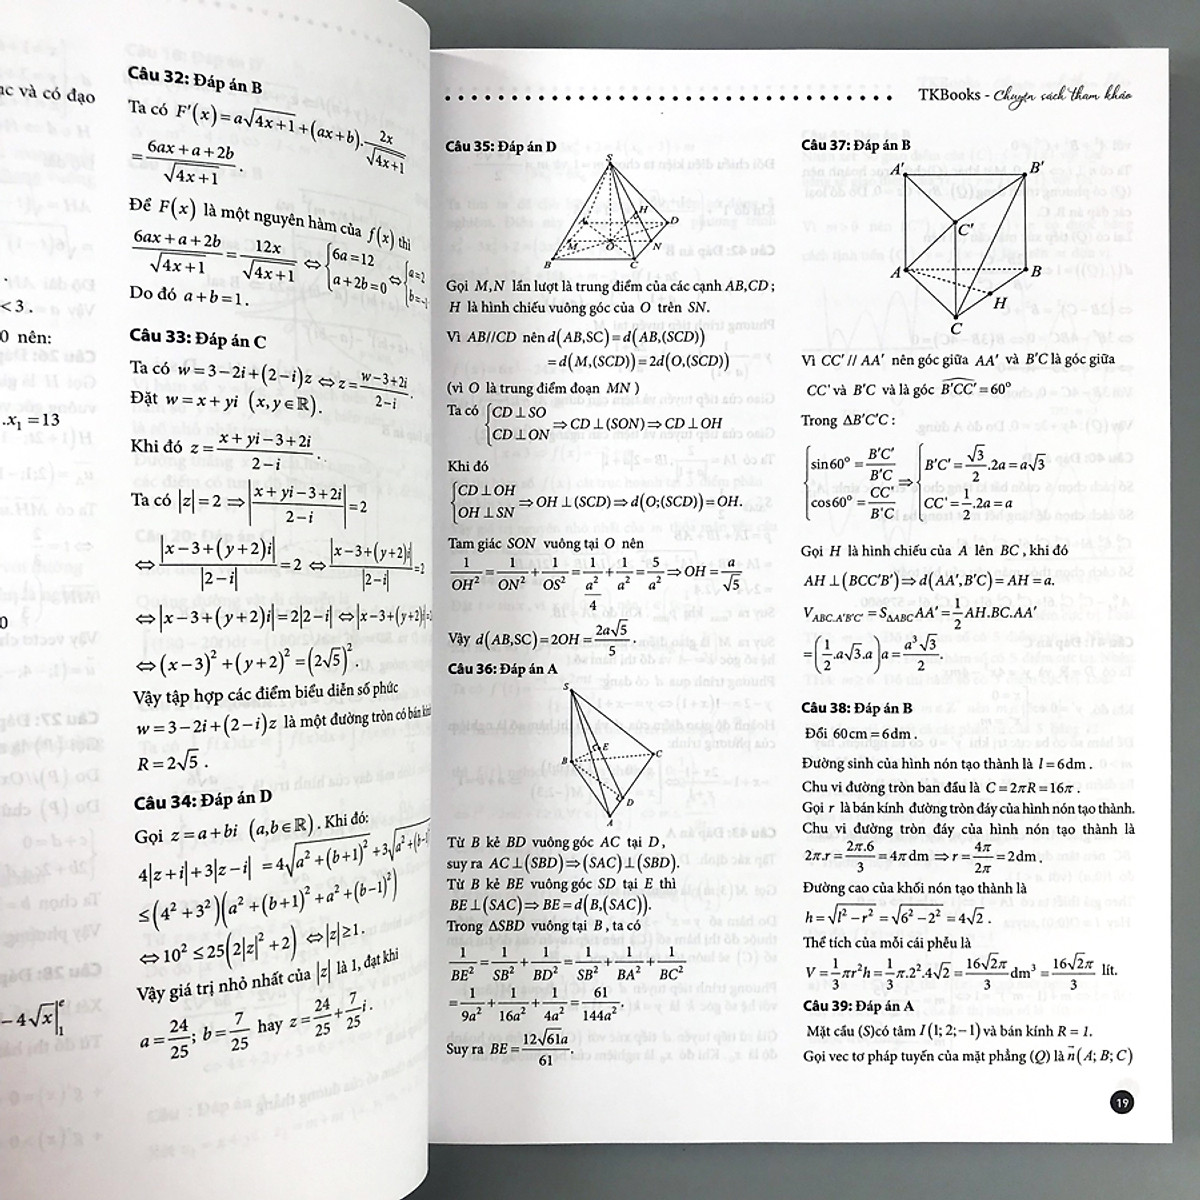 ục và có đạo
< 3 .
0 nên:
.x₁ = 13
0
− 4√x |₁ᵉ
Câu 32: Đáp án B
Ta có F′(x) = a√(4x+1) + (ax+b). 2x/√(4x+1)
= (6ax+a+2b)/√(4x+1) .
Để F(x) là một nguyên hàm của f(x) thì
(6ax+a+2b)/√(4x+1) = 12x/√(4x+1) ⇔ {6a=12; a+2b=0 ⇔ {a=2
Do đó a+b=1.
Câu 33: Đáp án C
Ta có w=3−2i+(2−i)z ⇔ z=(w−3+2i)/(2−i).
Đặt w=x+yi (x,y∈ℝ).
Khi đó z=(x+yi−3+2i)/(2−i).
Ta có |z|=2 ⇒ |(x+yi−3+2i)/(2−i)|=2
⇔ |x−3+(y+2)i|/|2−i|=2 ⇔ |x−3+(y+2)i|/|2−i|=2
⇔|x−3+(y+2)i|=2|2−i| ⇔|x−3+(y+2)i|
⇔(x−3)²+(y+2)²=(2√5)².
Vậy tập hợp các điểm biểu diễn số phức
w=3−2i+(2−i)z là một đường tròn có bán kính
R=2√5 .
Câu 34: Đáp án D
Gọi z=a+bi (a,b∈ℝ). Khi đó:
4|z+i|+3|z−i| =4√(a²+(b+1)²)+3√(a²+(b−1)
≤(4²+3²)(a²+(b+1)²+a²+(b−1)²)
⇔10²≤25(2|z|²+2) ⇔|z|≥1.
Vậy giá trị nhỏ nhất của |z| là 1, đạt khi
a=24/25; b=7/25 hay z=24/25+7/25 i.
TKBooks - Chuyên sách tham khảo
Câu 35: Đáp án D
S
A
H
D
M
O
N
B
C
Gọi M,N lần lượt là trung điểm của các cạnh AB,CD;
H là hình chiếu vuông góc của O trên SN.
Vì AB//CD nên d(AB,SC)=d(AB,(SCD))
=d(M,(SCD))=2d(O,(SCD))
(vì O là trung điểm đoạn MN)
Ta có {CD⊥SO; CD⊥ON ⇒CD⊥(SON)⇒CD⊥OH
Khi đó
{CD⊥OH; OH⊥SN ⇒OH⊥(SCD)⇒d(O;(SCD))=OH.
Tam giác SON vuông tại O nên
1/OH²=1/ON²+1/OS²=1/(a²/4)+1/a²=5/a²⇒OH=a/√5
Vậy d(AB,SC)=2OH=2a√5/5 .
Câu 36: Đáp án A
S
E
B
C
D
A
Từ B kẻ BD vuông góc AC tại D,
suy ra AC⊥(SBD)⇒(SAC)⊥(SBD).
Từ B kẻ BE vuông góc SD tại E thì
BE⊥(SAC)⇒BE=d(B,(SAC)).
Trong ΔSBD vuông tại B, ta có
1/BE²=1/SB²+1/BD²=1/SB²+1/BA²+1/BC²
=1/9a²+1/16a²+1/4a²=61/144a².
Suy ra BE=12√61a/61.
Câu 37: Đáp án B
A′
B′
C′
A
B
H
C
Vì CC′//AA′ nên góc giữa AA′ và B′C là góc giữa
CC′ và B′C và là góc B′CC′=60°
Trong ΔB′C′C:
{sin60°=B′C′/B′C; cos60°=CC′/B′C ⇒ {B′C′=√3/2.2a=a√3; CC′=1/2.2a=a
Gọi H là hình chiếu của A lên BC, khi đó
AH⊥(BCC′B′)⇒d(AA′,B′C)=AH=a.
V_ABC.A′B′C′=S_ΔABC.AA′=1/2AH.BC.AA′
=(1/2.a√3.a)a=a³√3/2.
Câu 38: Đáp án B
Đổi 60cm=6dm.
Đường sinh của hình nón tạo thành là l=6dm.
Chu vi đường tròn ban đầu là C=2πR=16π.
Gọi r là bán kính đường tròn đáy của hình nón tạo thành.
Chu vi đường tròn đáy của hình nón tạo thành là
2π.r=2π.6/3=4πdm ⇒r=4π/2π=2dm.
Đường cao của khối nón tạo thành là
h=√(l²−r²)=√(6²−2²)=4√2.
Thể tích của mỗi cái phễu là
V=1/3πr²h=1/3π.2².4√2=16√2π/3 dm³=16√2π/3 lít.
Câu 39: Đáp án A
Mặt cầu (S)có tâm I(1;2;−1)và bán kính R=1.
Gọi vec tơ pháp tuyến của mặt phẳng (Q) là n⃗(A;B;C)
19